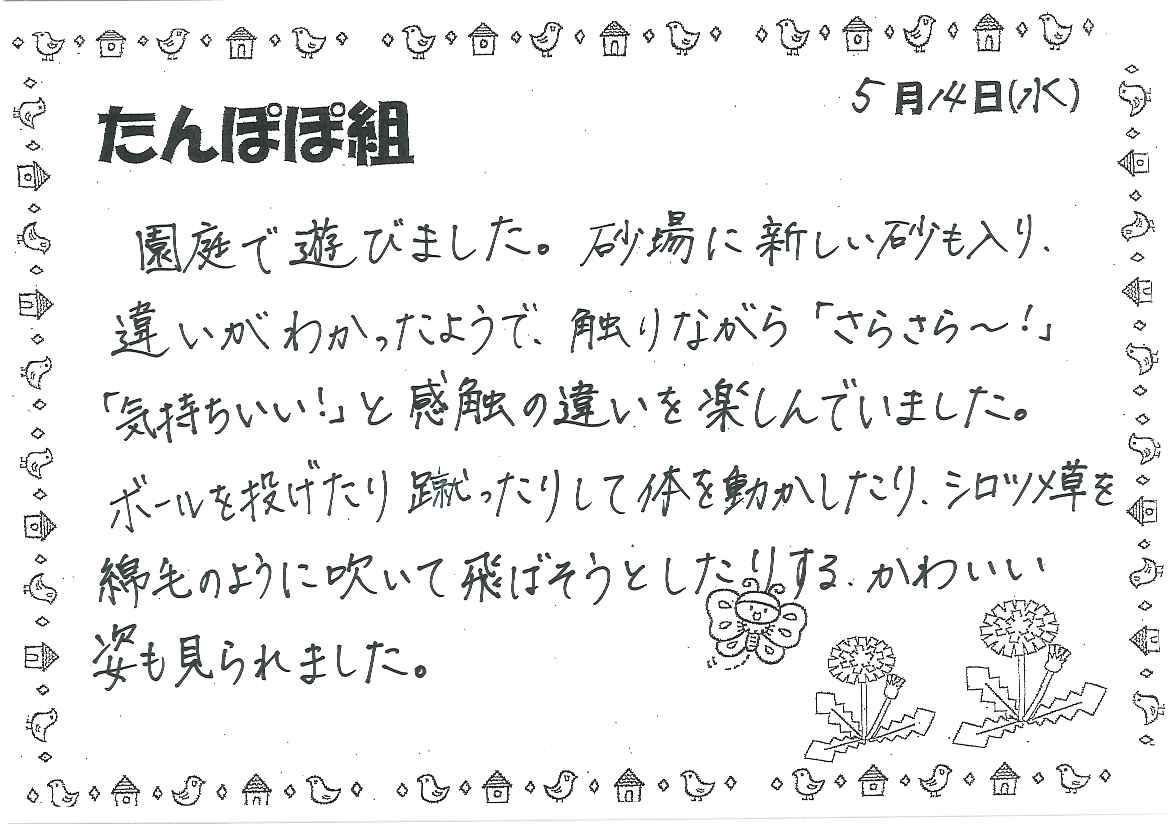 5月14日(水)
たんぽぽ組
園庭で遊びました。砂場に新しい砂も入り、
違いがわかったようで、触りながら「さらさら～！」
「気持ちいい！」と感触の違いを楽しんでいました。
ボールを投げたり蹴ったりして体を動かしたり、シロツメ草を
綿毛のように吹いて飛ばそうとしたりする、かわいい
姿も見られました。